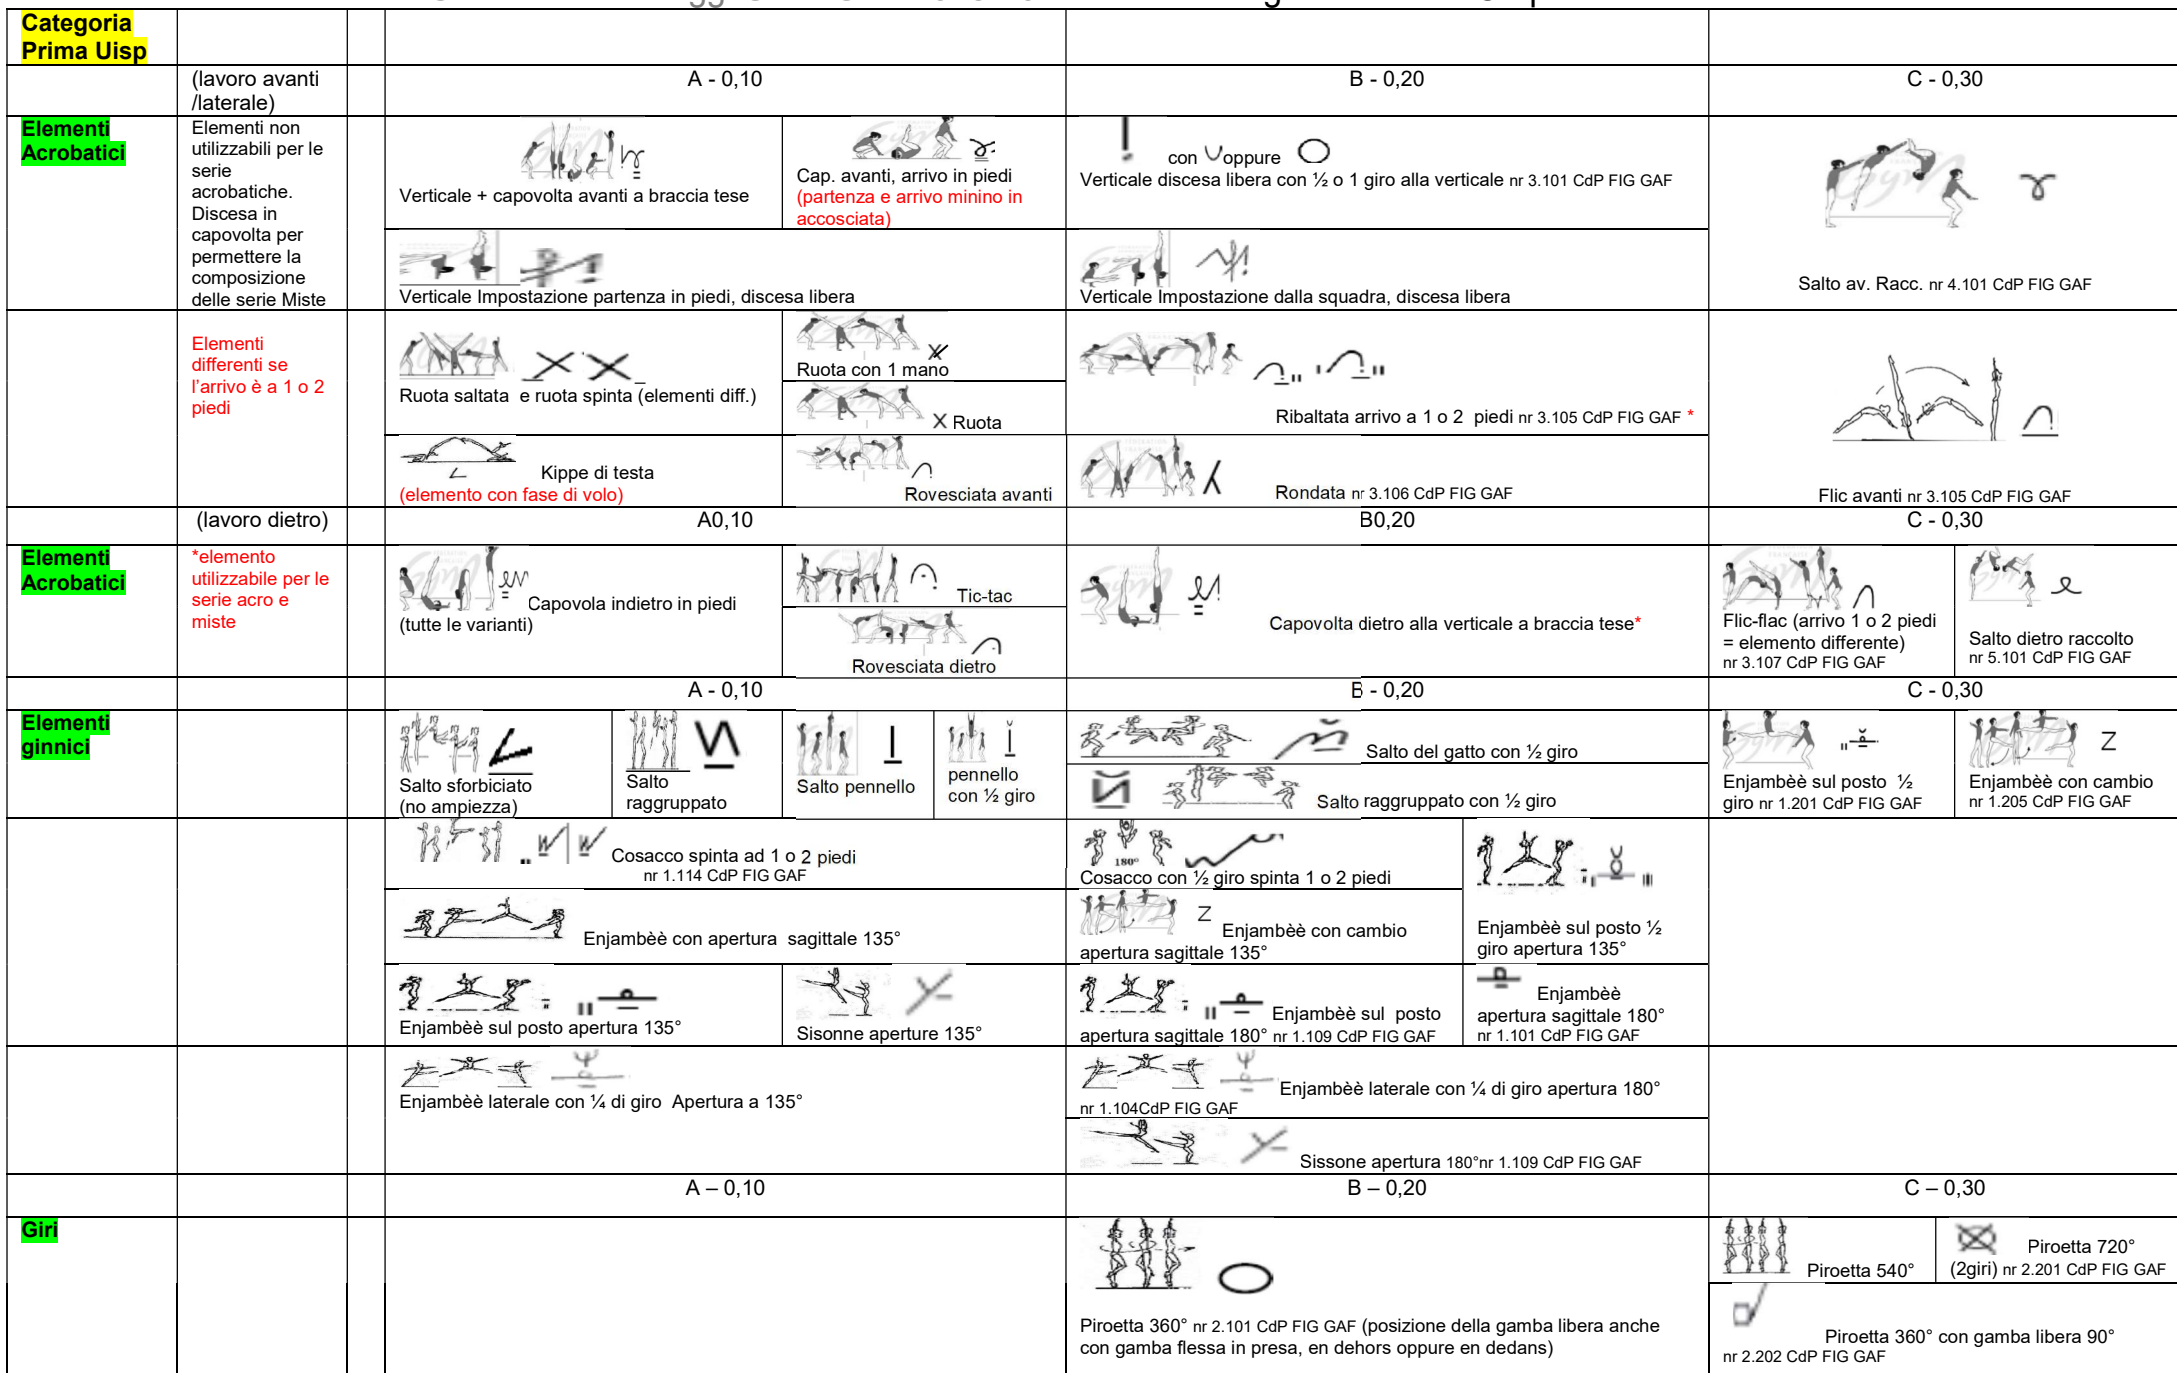 Categoria
Prima Uisp
(lavoro avanti
/laterale)
A - 0,10
B - 0,20
C - 0,30
Elementi
Acrobatici
Elementi non
utilizzabili per le
serie
acrobatiche.
Discesa in
capovolta per
permettere la
composizione
delle serie Miste
Verticale + capovolta avanti a braccia tese
Cap. avanti, arrivo in piedi
(partenza e arrivo minino in
accosciata)
con oppure
Verticale discesa libera con ½ o 1 giro alla verticale nr 3.101 CdP FIG GAF
Salto av. Racc. nr 4.101 CdP FIG GAF
Verticale Impostazione partenza in piedi, discesa libera
Verticale Impostazione dalla squadra, discesa libera
Elementi
differenti se
l'arrivo è a 1 o 2
piedi
Ruota saltata e ruota spinta (elementi diff.)
Ruota con 1 mano
X Ruota
Ribaltata arrivo a 1 o 2 piedi nr 3.105 CdP FIG GAF *
Flic avanti nr 3.105 CdP FIG GAF
Kippe di testa
(elemento con fase di volo)
Rovesciata avanti
Rondata nr 3.106 CdP FIG GAF
(lavoro dietro)
A0,10
B0,20
C - 0,30
Elementi
Acrobatici
*elemento
utilizzabile per le
serie acro e
miste
Capovola indietro in piedi
(tutte le varianti)
Tic-tac
Rovesciata dietro
Capovolta dietro alla verticale a braccia tese*
Flic-flac (arrivo 1 o 2 piedi
= elemento differente)
nr 3.107 CdP FIG GAF
Salto dietro raccolto
nr 5.101 CdP FIG GAF
A - 0,10
B - 0,20
C - 0,30
Elementi
ginnici
Salto sforbiciato
(no ampiezza)
Salto
raggruppato
Salto pennello
pennello
con ½ giro
Salto del gatto con ½ giro
Salto raggruppato con ½ giro
Enjambèè sul posto ½
giro nr 1.201 CdP FIG GAF
Z
Enjambèè con cambio
nr 1.205 CdP FIG GAF
Cosacco spinta ad 1 o 2 piedi
nr 1.114 CdP FIG GAF
180°
Cosacco con ½ giro spinta 1 o 2 piedi
Enjambèè con apertura sagittale 135°
Z Enjambèè con cambio
apertura sagittale 135°
Enjambèè sul posto ½
giro apertura 135°
Enjambèè sul posto apertura 135°
Sisonne aperture 135°
Enjambèè sul posto
apertura sagittale 180° nr 1.109 CdP FIG GAF
Enjambèè
apertura sagittale 180°
nr 1.101 CdP FIG GAF
Enjambèè laterale con ¼ di giro Apertura a 135°
Enjambèè laterale con ¼ di giro apertura 180°
nr 1.104CdP FIG GAF
Sissone apertura 180°nr 1.109 CdP FIG GAF
A – 0,10
B – 0,20
C – 0,30
Giri
Piroetta 360° nr 2.101 CdP FIG GAF (posizione della gamba libera anche
con gamba flessa in presa, en dehors oppure en dedans)
Piroetta 540°
Piroetta 720°
(2giri) nr 2.201 CdP FIG GAF
Piroetta 360° con gamba libera 90°
nr 2.202 CdP FIG GAF